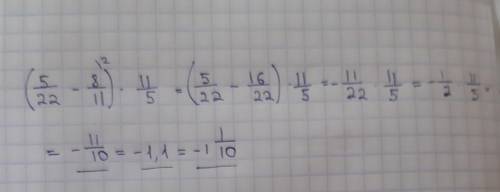 (5/22 - 8/11)² · 11/5 = (5/22 - 16/22) · 11/5 = - 11/22 · 11/5 = - 1/2 · 11/5 =
= - 11/10 = -1,1 = -1 1/10